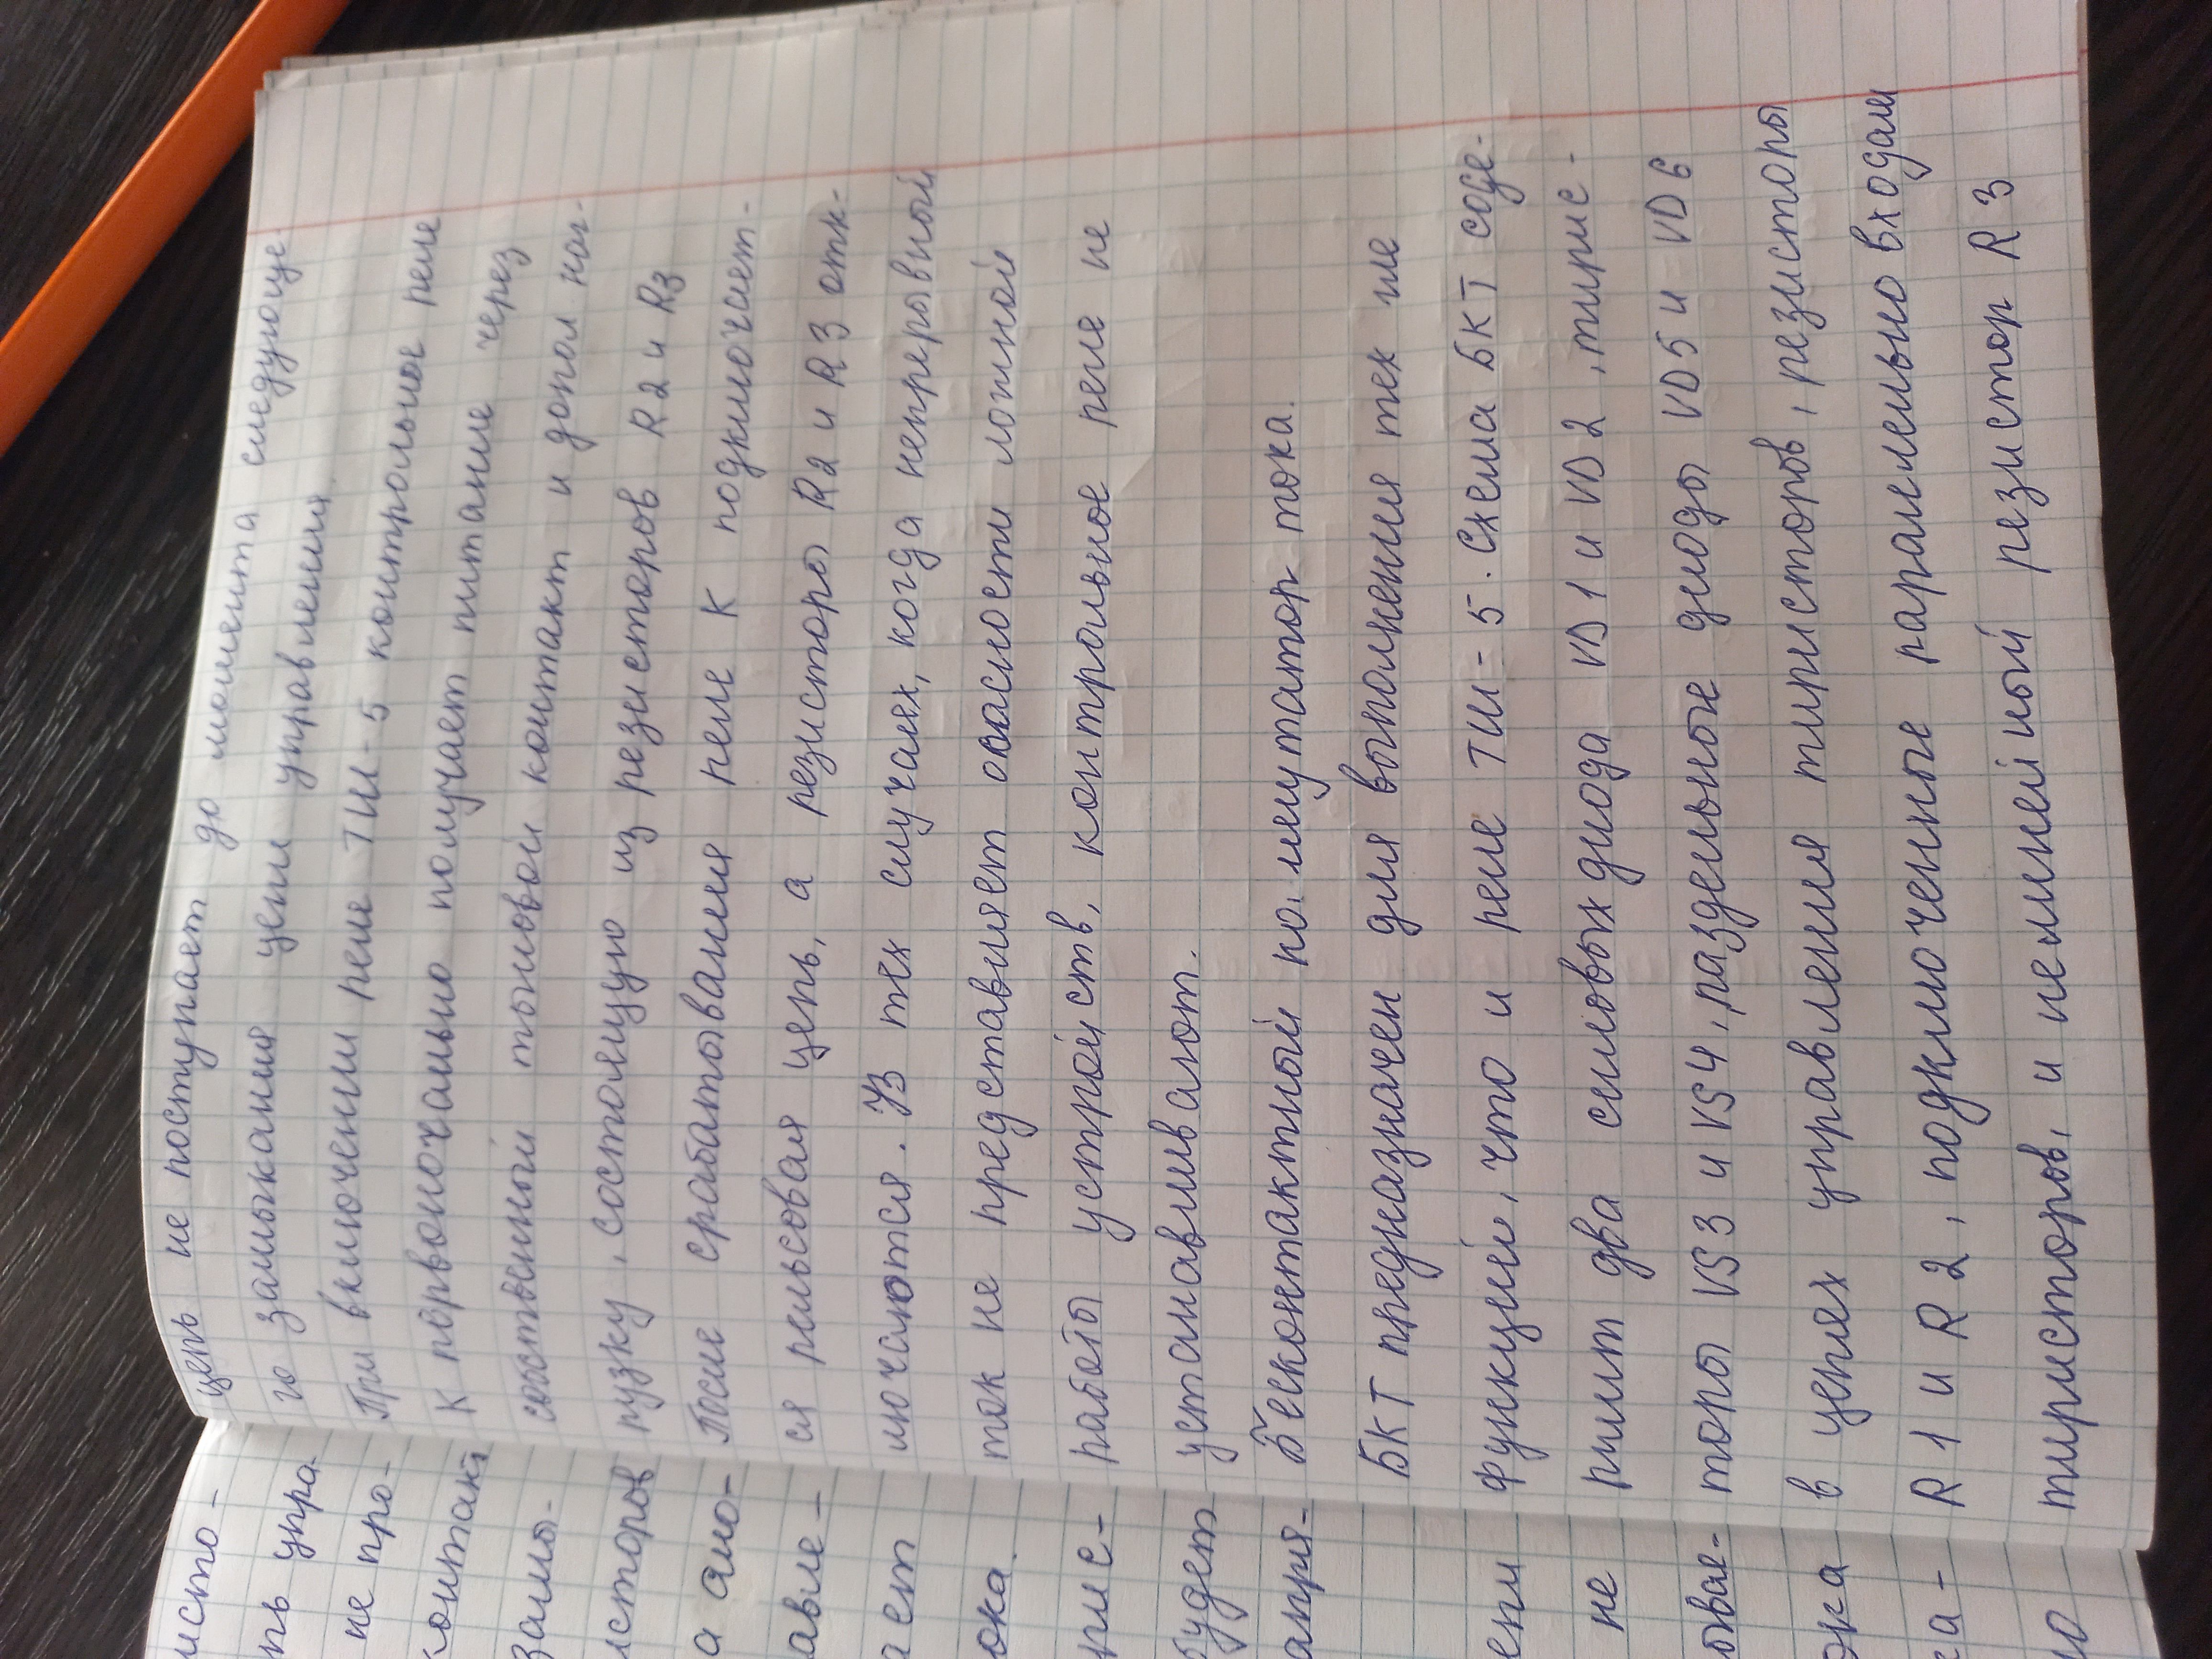 цепь не поступает до момента следующе-
го замыкания цепи управления.
При включении реле ТШ-5 контрольное реле
К первоночально получает питание через
собственный тыловой контакт и допол наг-
рузку, состоящую из резисторов R2 и R3
После срабатывания реле К подключает-
ся рельсовая цепь, а резисторы R2 и R3 отк-
лючаются. В тех случаях, когда непрерывный
ток не представляет опасности ложной
работы устройств, контрольное реле не
устанавливают.
Бесконтактный коммутатор тока.
БКТ предназначен для выполнения тех же
функций, что и реле ТШ-5. Схема БКТ соде-
ржит два силовых диода VD1 и VD2, тирис-
торы VS3 и VS4, раздельные диоды VD5 и VD6
в цепях управления тиристоров, резисторы
R1 и R2, подключенные паралельно входам
тиристоров, и нелинейный резистор R3
исто-
пь упра
не про-
контакт
замы-
исторов
а ано-
авле-
ает
ока.
рис-
будет
апря-
ени
не
овае-
ока
ка-